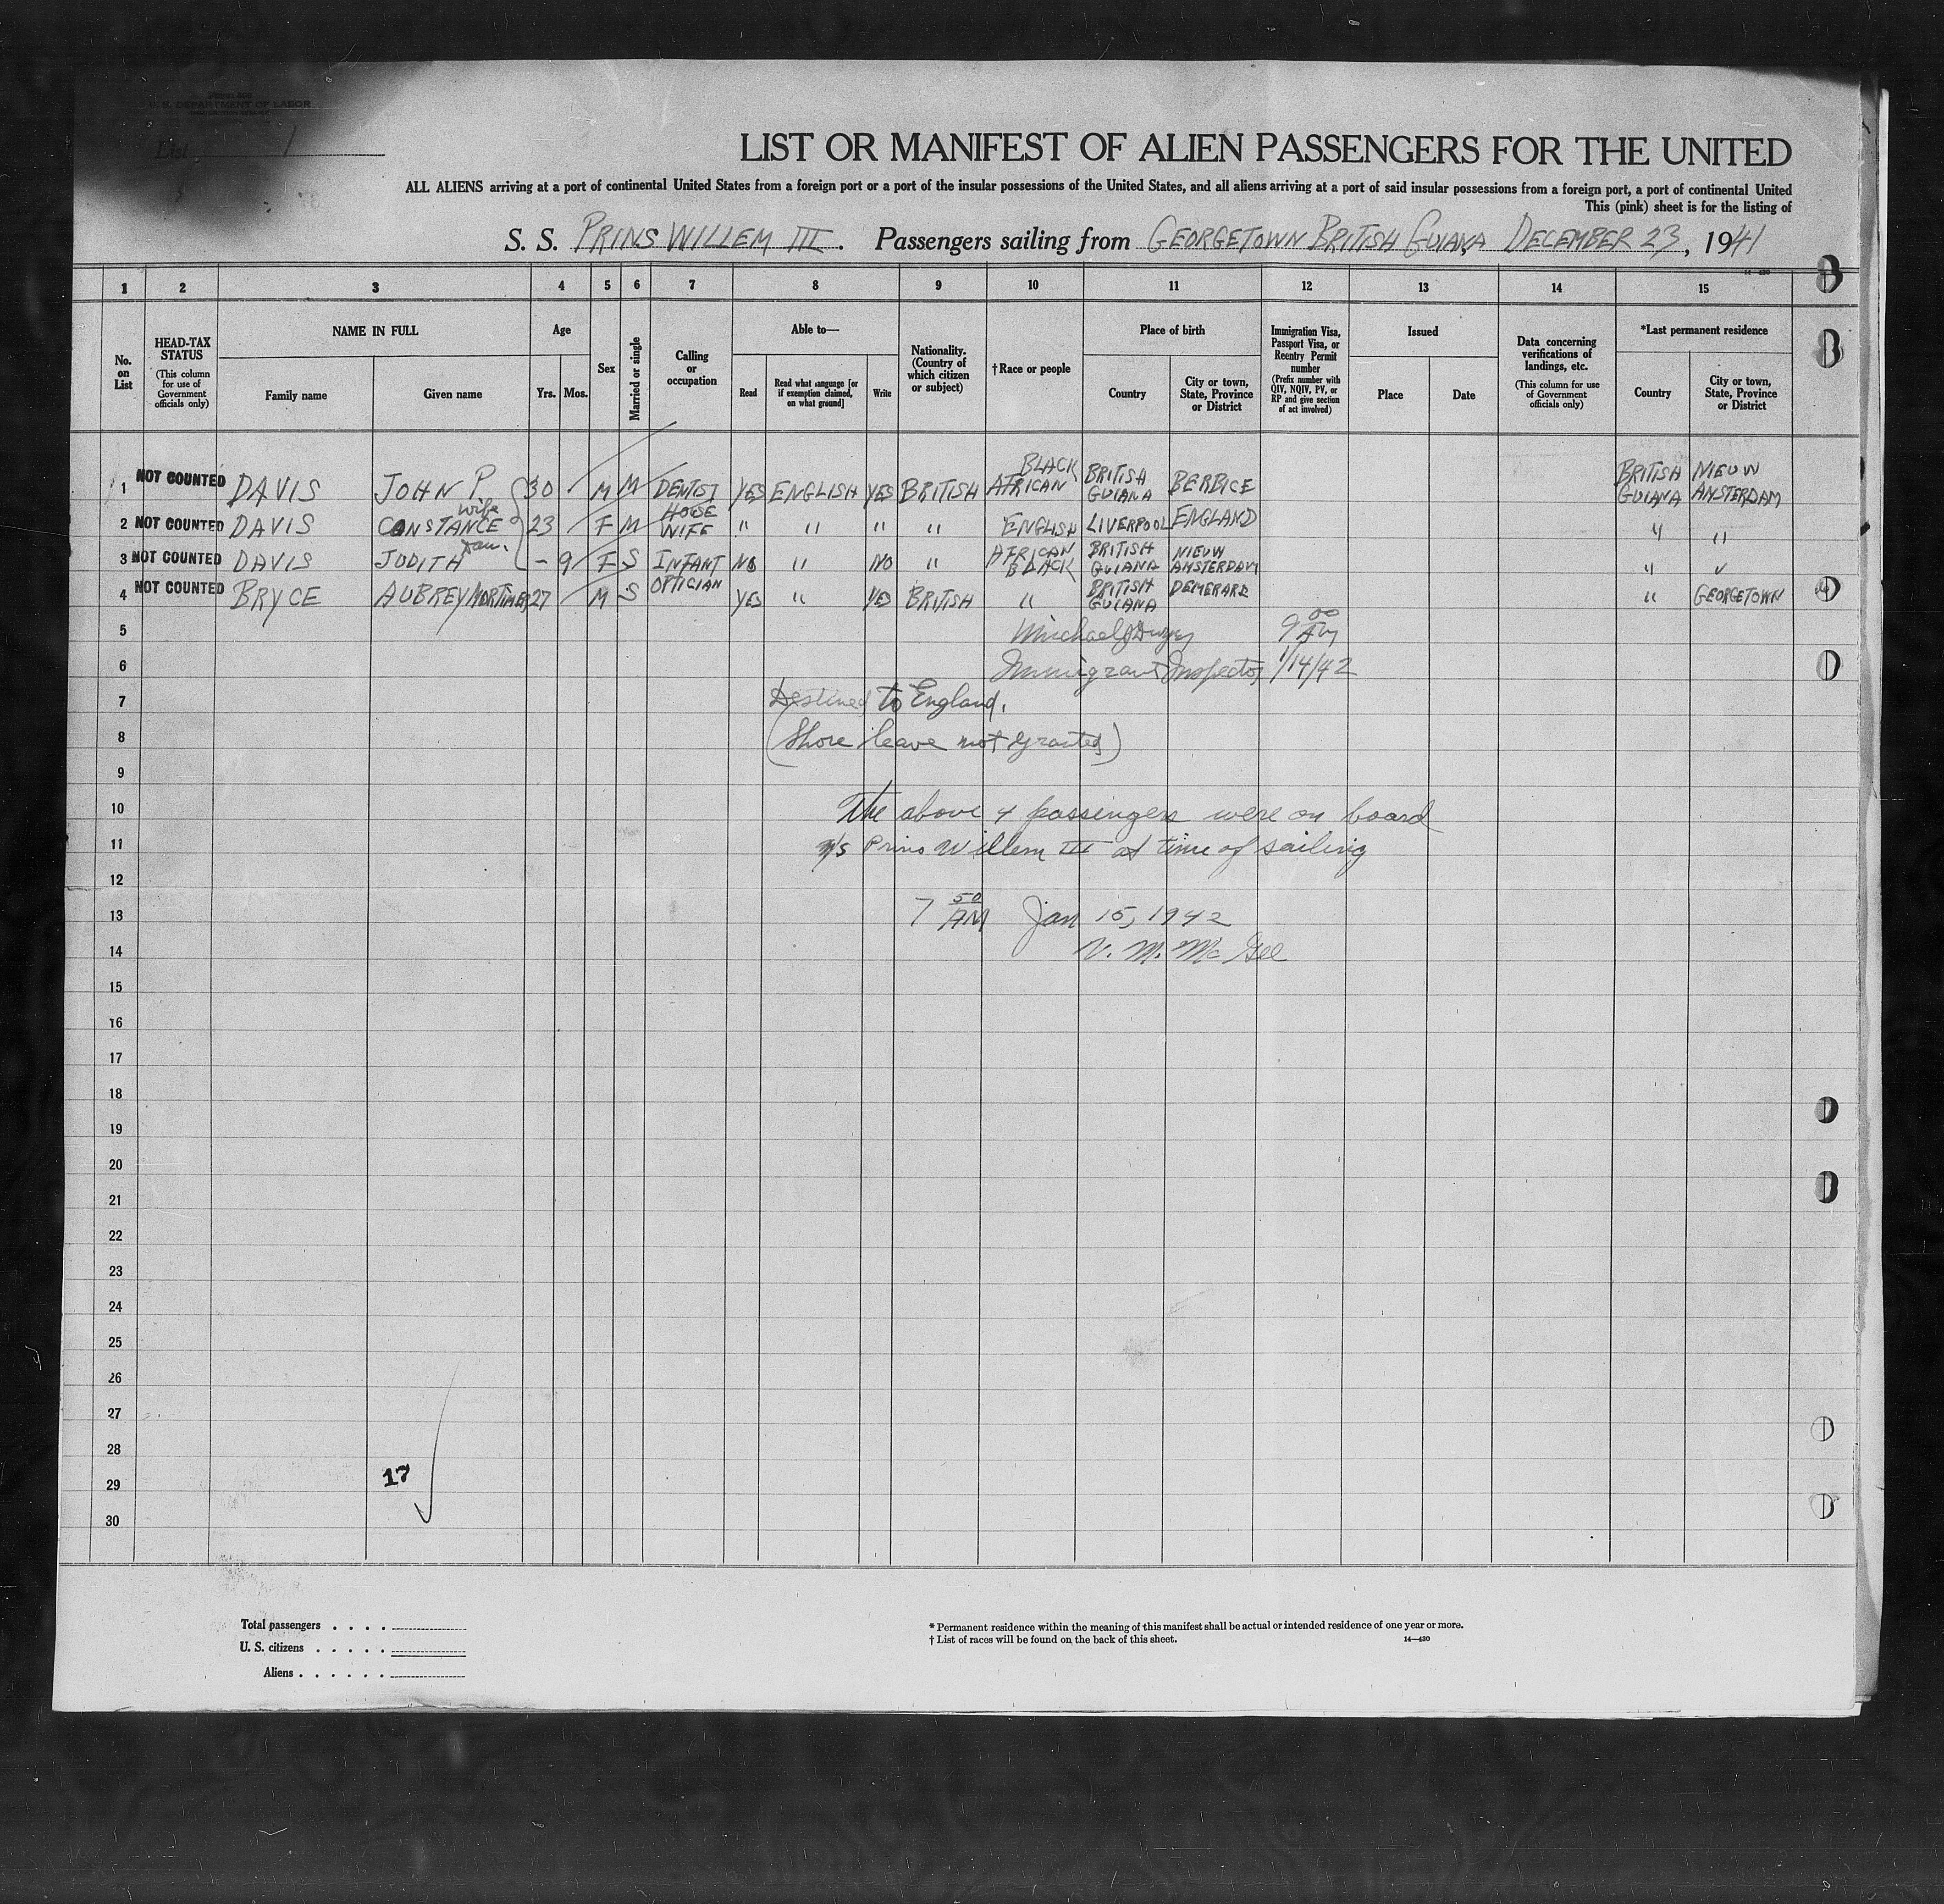 Form 500
U. S. DEPARTMENT OF LABOR
List 1
LIST OR MANIFEST OF ALIEN PASSENGERS FOR THE UNITED
ALL ALIENS arriving at a port of continental United States from a foreign port or a port of the insular possessions of the United States, and all aliens arriving at a port of said insular possessions from a foreign port, a port of continental United
This (pink) sheet is for the listing of
S. S. PRINS WILLEM III. Passengers sailing from GEORGETOWN BRITISH GUIANA, DECEMBER 23, 1941
14-430
1 2 3 4 5 6 7 8 9 10 11 12 13 14 15
No. on List
HEAD-TAX STATUS
(This column for use of Government officials only)
NAME IN FULL
Family name
Given name
Age
Yrs.
Mos.
Sex
Married or single
Calling or occupation
Able to—
Read
Read what language [or if exemption claimed, on what ground]
Write
Nationality. (Country of which citizen or subject)
†Race or people
Place of birth
Country
City or town, State, Province or District
Immigration Visa, Passport Visa, or Reentry Permit number
(Prefix number with QIV, NQIV, PV, or RP and give section of act involved)
Issued
Place
Date
Data concerning verifications of landings, etc.
(This column for use of Government officials only)
*Last permanent residence
Country
City or town, State, Province or District
1 NOT COUNTED DAVIS JOHN P. 30 M M DENTIST YES ENGLISH YES BRITISH BLACK AFRICAN BRITISH GUIANA BERBICE BRITISH GUIANA NIEUW AMSTERDAM
2 NOT COUNTED DAVIS CONSTANCE wife 23 F M HOUSE WIFE " " " " ENGLISH LIVERPOOL ENGLAND " "
3 NOT COUNTED DAVIS JUDITH dau. - 9 F S INFANT NO " NO " AFRICAN BLACK BRITISH GUIANA NIEUW AMSTERDAM " "
4 NOT COUNTED BRYCE AUBREY MORTIMER 27 M S OPTICIAN YES " YES BRITISH " BRITISH GUIANA DEMERARA " GEORGETOWN
5 Michael J Dwyer 9 00 AM
6 Immigrant Inspector 1/14/42
7 Destined to England.
8 (Shore leave not granted)
9
10 The above 4 passengers were on board
11 M/S Prins Willem III at time of sailing
12
13 7 50 AM Jan 15, 1942
14 V. M. McGee
15
16
17
18
19
20
21
22
23
24
25
26
27
28
29 17
30
Total passengers . . . .
U. S. citizens . . . . .
Aliens . . . . . .
* Permanent residence within the meaning of this manifest shall be actual or intended residence of one year or more.
† List of races will be found on the back of this sheet. 14—430